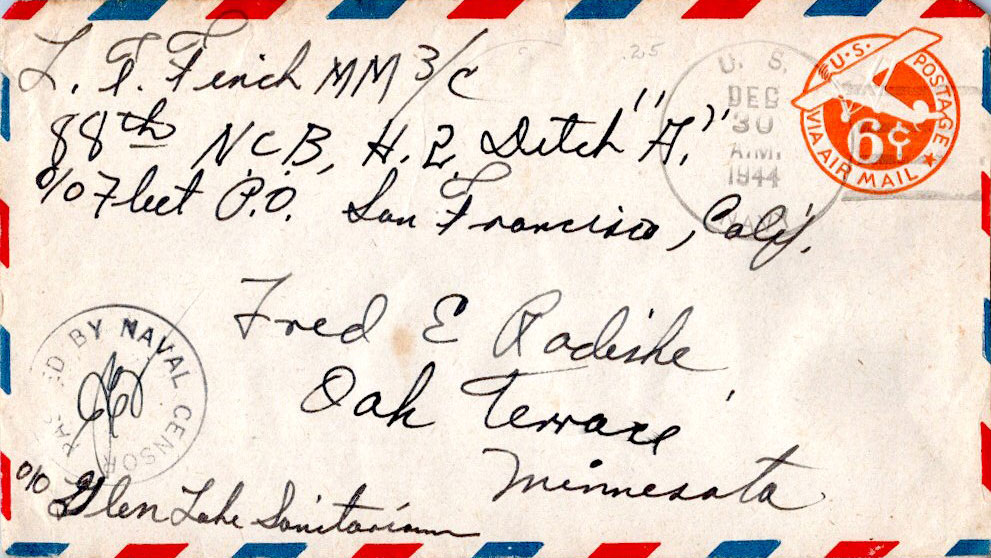 L. F. Finch MM 3/c
88th NCB, H. 2, Detch "A."
c/o Fleet P.O. San Francisco, Calif.
25
U. S.
DEC
30
A.M.
1944
NAVY
U.S. POSTAGE
6¢
VIA AIR MAIL
Fred E
Oak Terrace
Minnesota
PASSED BY NAVAL CENSOR
c/o Glen Lake Sanitarium